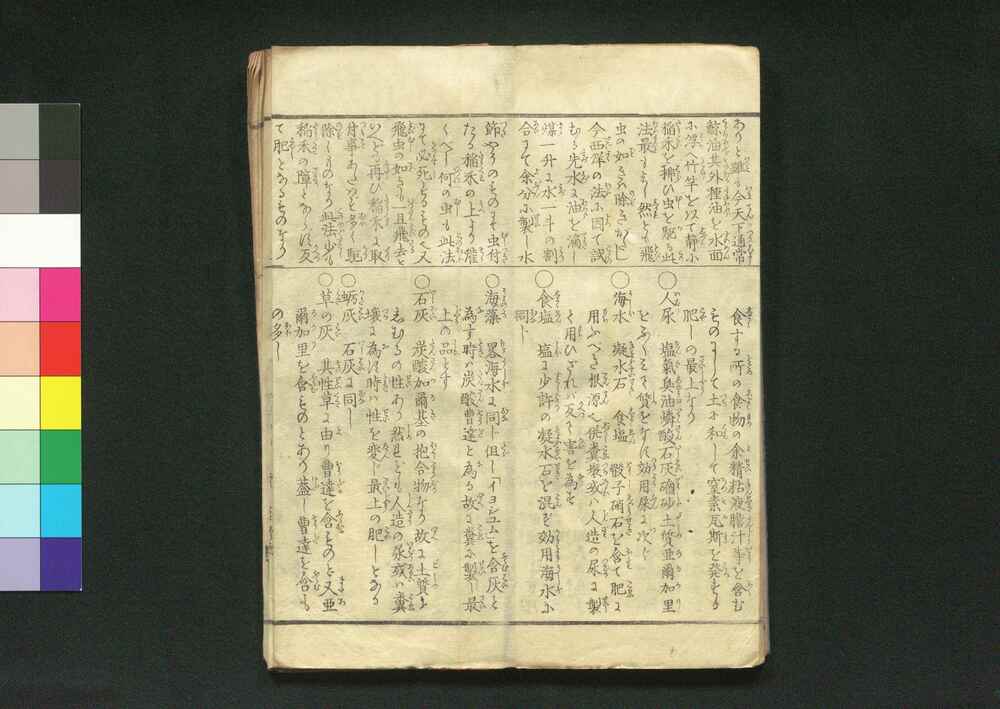 ありと雖も今天下通常
鯨油其外種油を水面
に浮べ竹竿を以て静に
稲禾を掃ひ虫を駆る此
法最もよし然とも飛
虫の如きハ除き
今西洋の法に因て試
むる先水に油を滴し
煤一升に水一斗の割
合にて余分に製し水
節やうのものにて虫付
たる稲禾の上より灌
くべし何の虫も此法
にて必死せるものハ又
飛虫の如きハ一旦飛去と
いへども再ひ稲禾に取
付事あたハず多く駆
除しものなり此法少も
稲禾の障とならば反
て肥となるものなり
食する所の食物の余精粘液膽汁等を含む
ものにして土に和して窒素瓦斯を発する
肥しの最上なり
○人尿 塩氣臭油燐酸石灰硇砂土質亜爾加里
とふくミて質をなす効用屎に次ぐ
○海水 凝水石 食塩 骰子硝石を含て肥に
用ふべき根源也供糞振或ハ人造の尿に製
く用ひざれハ反て害を為す
○食塩 塩に少許の凝水石を混ず効用海水に
同ト
○海藻 畧海水に同ト但し「イヨジユム」を含灰と
為す時ハ炭酸曹達と為る故に糞に製し最
上の品とす
○石灰 炭酸加爾基の抱合物なり故に土質を
しむるの性あり然れども人造の屎或ハ糞
壌に為す時ハ性を変し最上の肥しとなる
○蛎灰 石灰に同し
○草の灰 其性草に由り曹達を含ものと又亜
爾加里を含ものとあり蓋し曹達を含もの
の多し